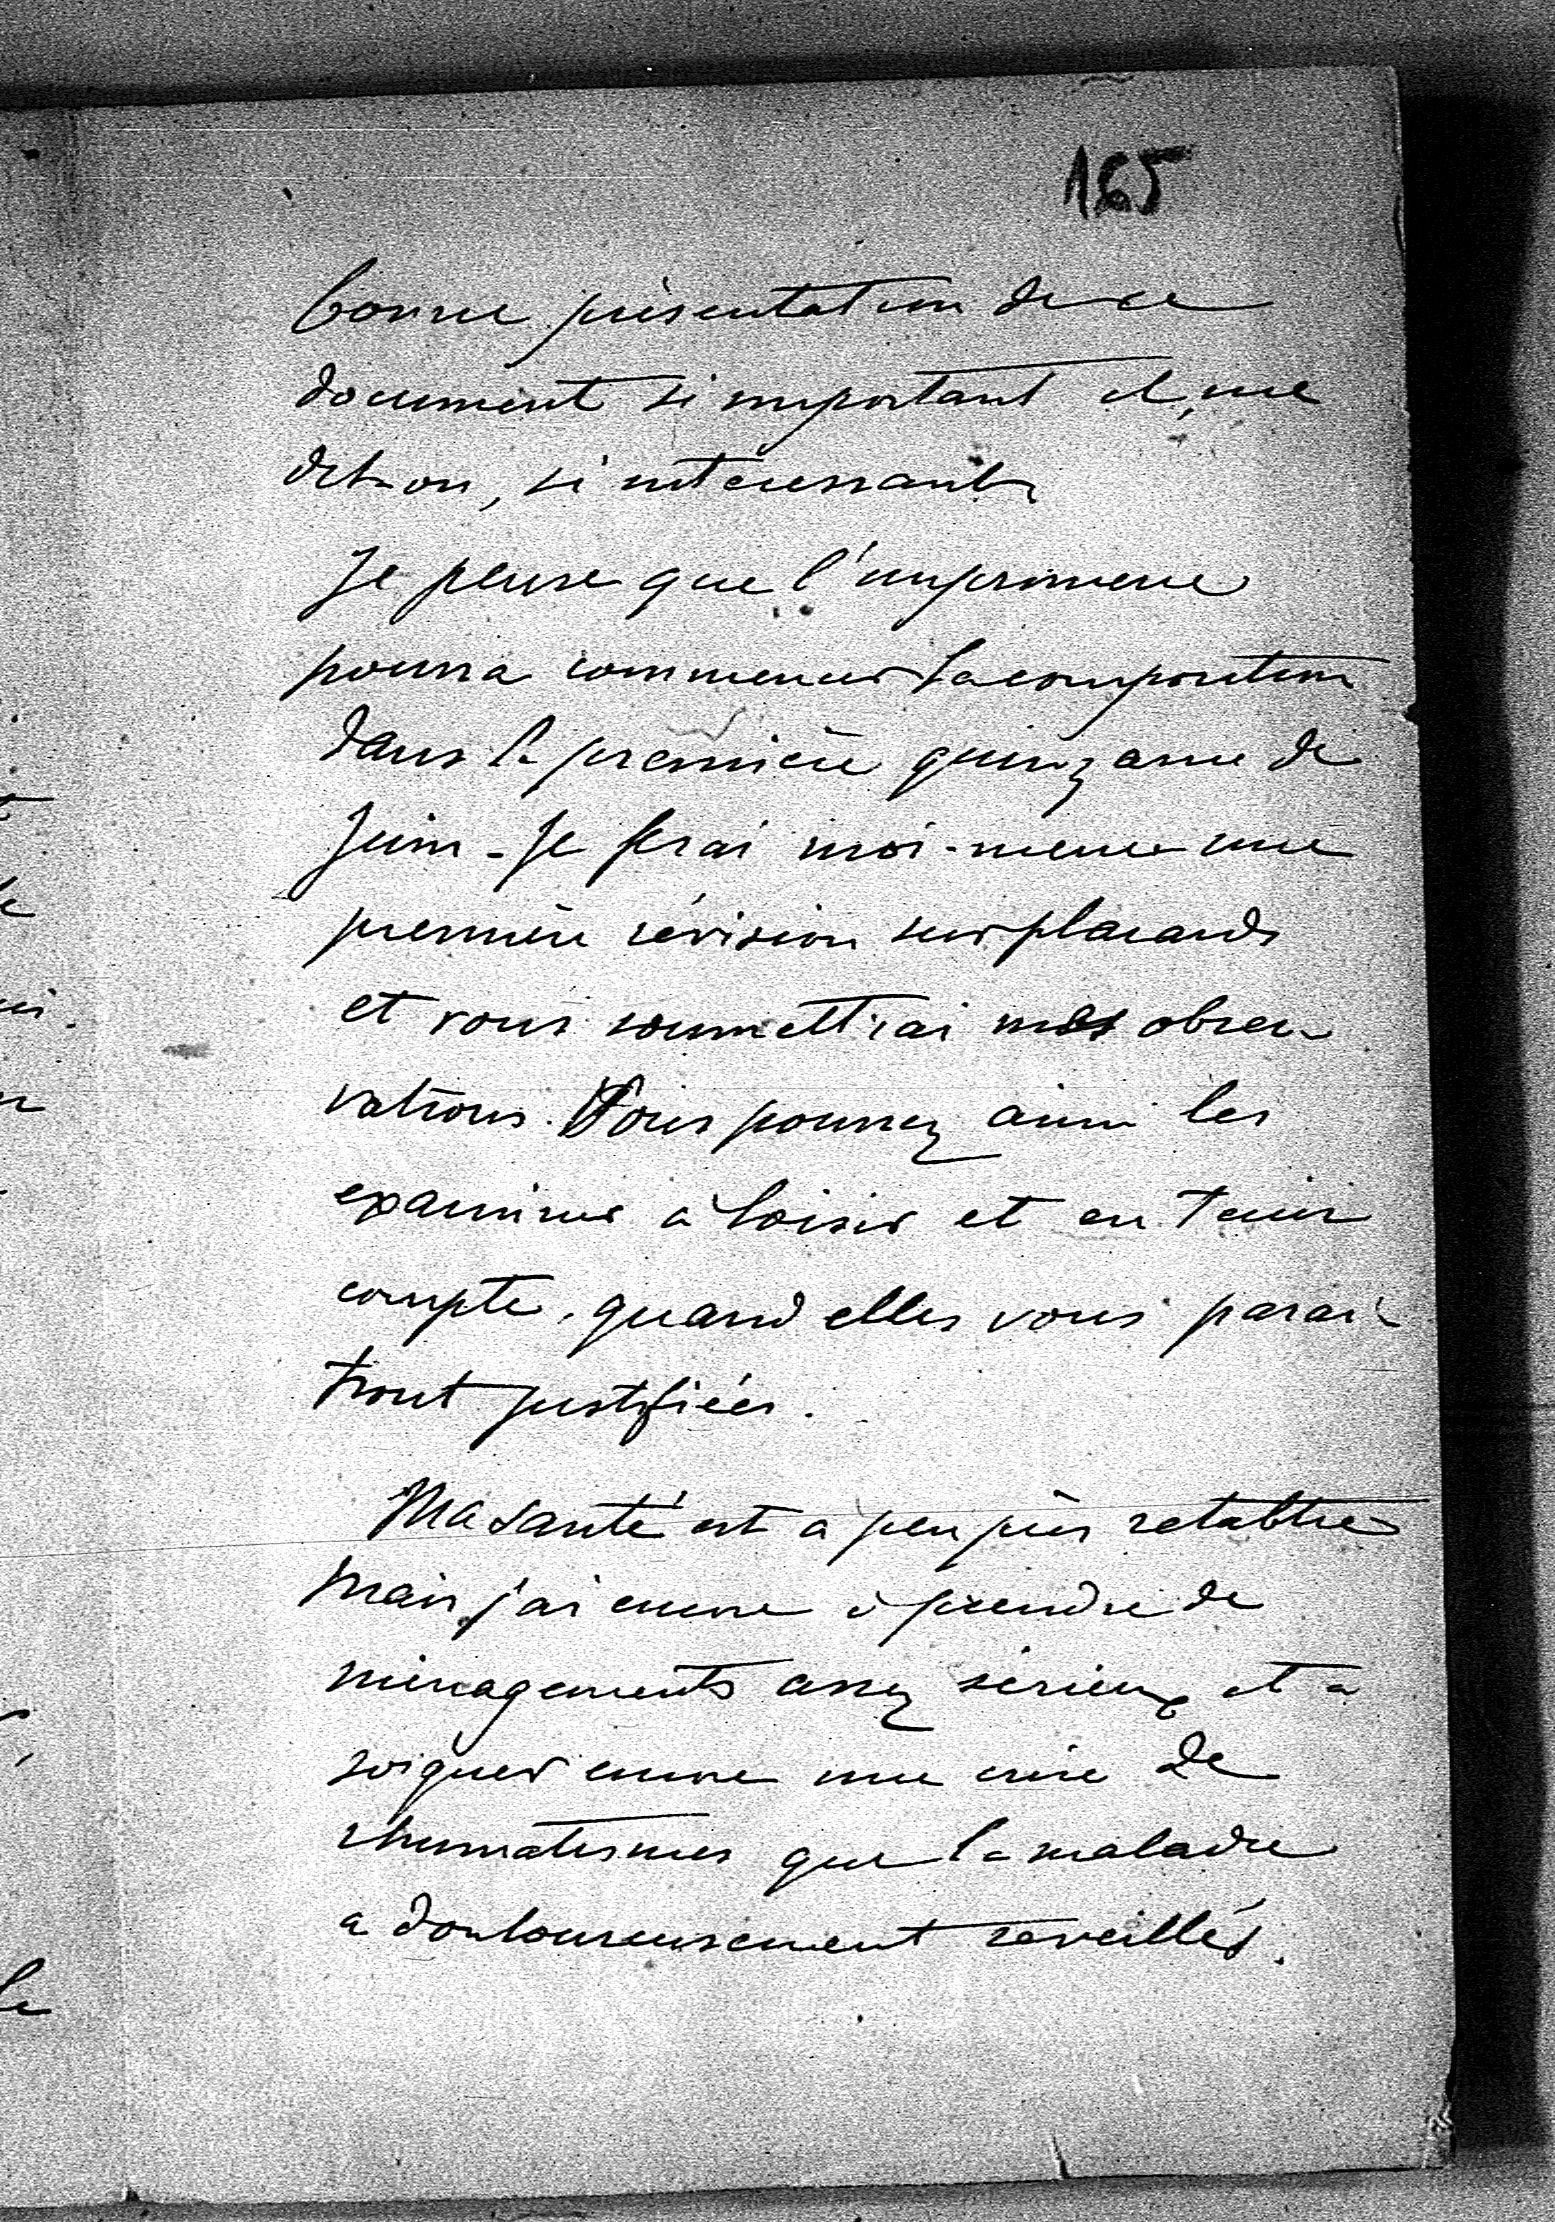 165
bonne présentation de ce
document si important et, me
dit-on, si intéressant.
Je pense que l'imprimerie
pourra commencer la composition
dans la première quinzaine de
Juin - Je ferai moi-même une
première révision sur placards
et vous soumettrai mes obser-
vations. Vous pourrez ainsi les
examiner à loisir et en tenir
compte, quand elles vous paraî-
tront justifiées.
Ma santé est à peu près rétablie
mais j'ai encore à prendre de
ménagements assez sérieux et à
soigner encore une crise de
rhumatismes que la maladie
a douloureusement réveillés.